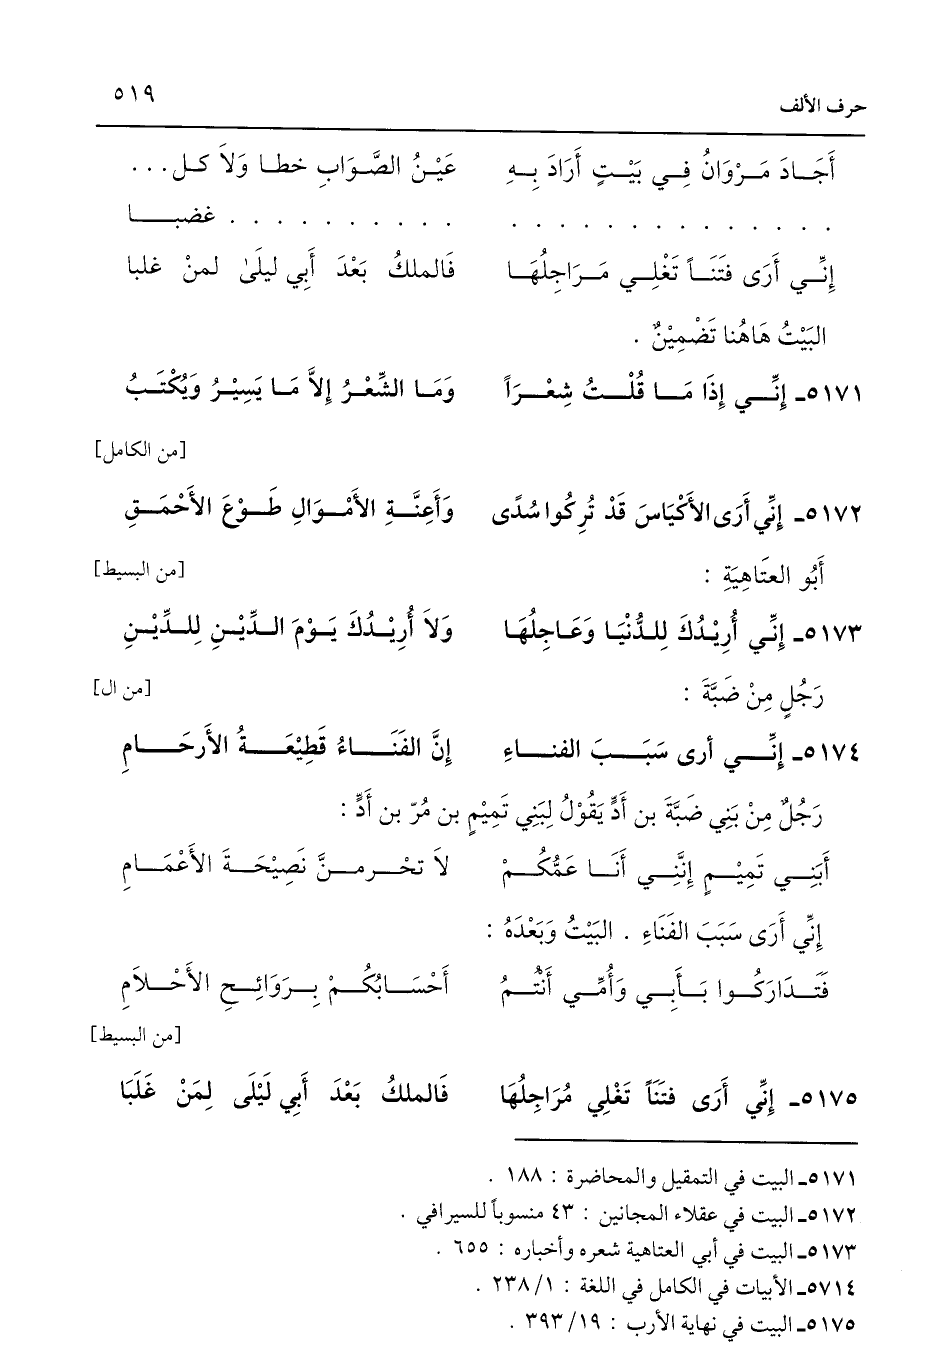 حرف الألف ٥١٩
أَجَـادَ مَـرْوَانُ فِـي بَيْـتٍ أَرَادَ بِـهِ عَيْـنُ الصَّـوَابِ خطـا وَلاَ كـل. . .
. . . . . . . . . . . . . . . . . . . . . . . غضبـــا
إِنِّـي أَرَى فتَنَـاً تَغْلِـي مَـرَاجِلُهَـا فَالملكُ بَعْدَ أَبِي ليلَىٰ لمنْ غلبا
البَيْتُ هَاهُنا تَضْمِيْنٌ .
٥١٧١ـ إِنِّـي إِذَا مَـا قُلْـتُ شِعْـرَاً وَمَـا الشِّعْـرُ إِلاَّ مَـا يَسِيْـرُ وَيُكْتَـبُ
[من الكامل]
٥١٧٢ـ إِنِّي أَرَى الأَكْيَاسَ قَدْ تُرِكُوا سُدًى وَأَعِنَّـةِ الأَمْـوَالِ طَـوْعَ الأَحْمَـقِ
أَبُو العتَاهِيَةِ : [من البسيط]
٥١٧٣ـ إِنِّـي أُرِيْـدُكَ لِلـدُّنْيَـا وَعَـاجِلُهَـا وَلاَ أُرِيْـدُكَ يَـوْمَ الـدِّيْـنِ لِلـدِّيْـنِ
رَجُلٍ مِنْ ضَبَّةَ : [من ال]
٥١٧٤ـ إِنِّـــي أرى سَبَـــبَ الفنـــاءِ إِنَّ الفَنَـــاءُ قَطِيْعَـــةُ الأَرحَـــامِ
رَجُلٌ مِنْ بَنِي ضَبَّةَ بن أَدٍّ يَقُوْلُ لِبَنِي تَمِيْمٍ بن مُرّ بن أَدٍّ :
أَبَنِـي تَمِيْـمٍ إِنَّنِـي أَنَـا عَمُّكُـمْ لاَ تحْـرمـنَّ نَصِيْحَـةَ الأَعْمَـامِ
إِنِّي أَرَى سَبَبَ الفَنَاءِ . البَيْتُ وَبَعْدَهُ :
فَتَـدَارَكُـوا بَـأَبِـي وَأُمِّـي أَنْتُـمُ أَحْسَـابُكُـمْ بِـرَوَائِـحِ الأَحْـلاَمِ
[من البسيط]
٥١٧٥ـ إِنِّي أَرَى فتَنَاً تَغْلِي مُرَاجِلُهَا فَالملكُ بَعْدَ أَبِي لَيْلَى لِمَنْ غَلَبَا
٥١٧١ـ البيت في التمقيل والمحاضرة : ١٨٨ .
٥١٧٢ـ البيت في عقلاء المجانين : ٤٣ منسوباً للسيرافي .
٥١٧٣ـ البيت في أبي العتاهية شعره وأخباره : ٦٥٥ .
٥٧١٤ـ الأبيات في الكامل في اللغة : ١/ ٢٣٨ .
٥١٧٥ـ البيت في نهاية الأرب : ١٩/ ٣٩٣ .